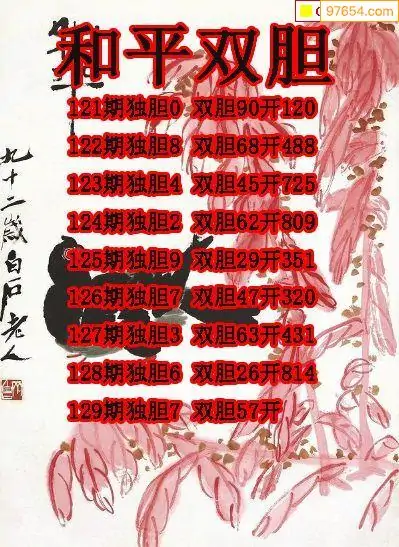 97654.com
和平双胆
121期独胆0 双胆90开120
122期独胆8 双胆68开488
123期独胆4 双胆45开725
124期独胆2 双胆62开809
125期独胆9 双胆29开351
126期独胆7 双胆47开320
127期独胆3 双胆63开431
128期独胆6 双胆26开814
129期独胆7 双胆57开
九十二歲白石老人